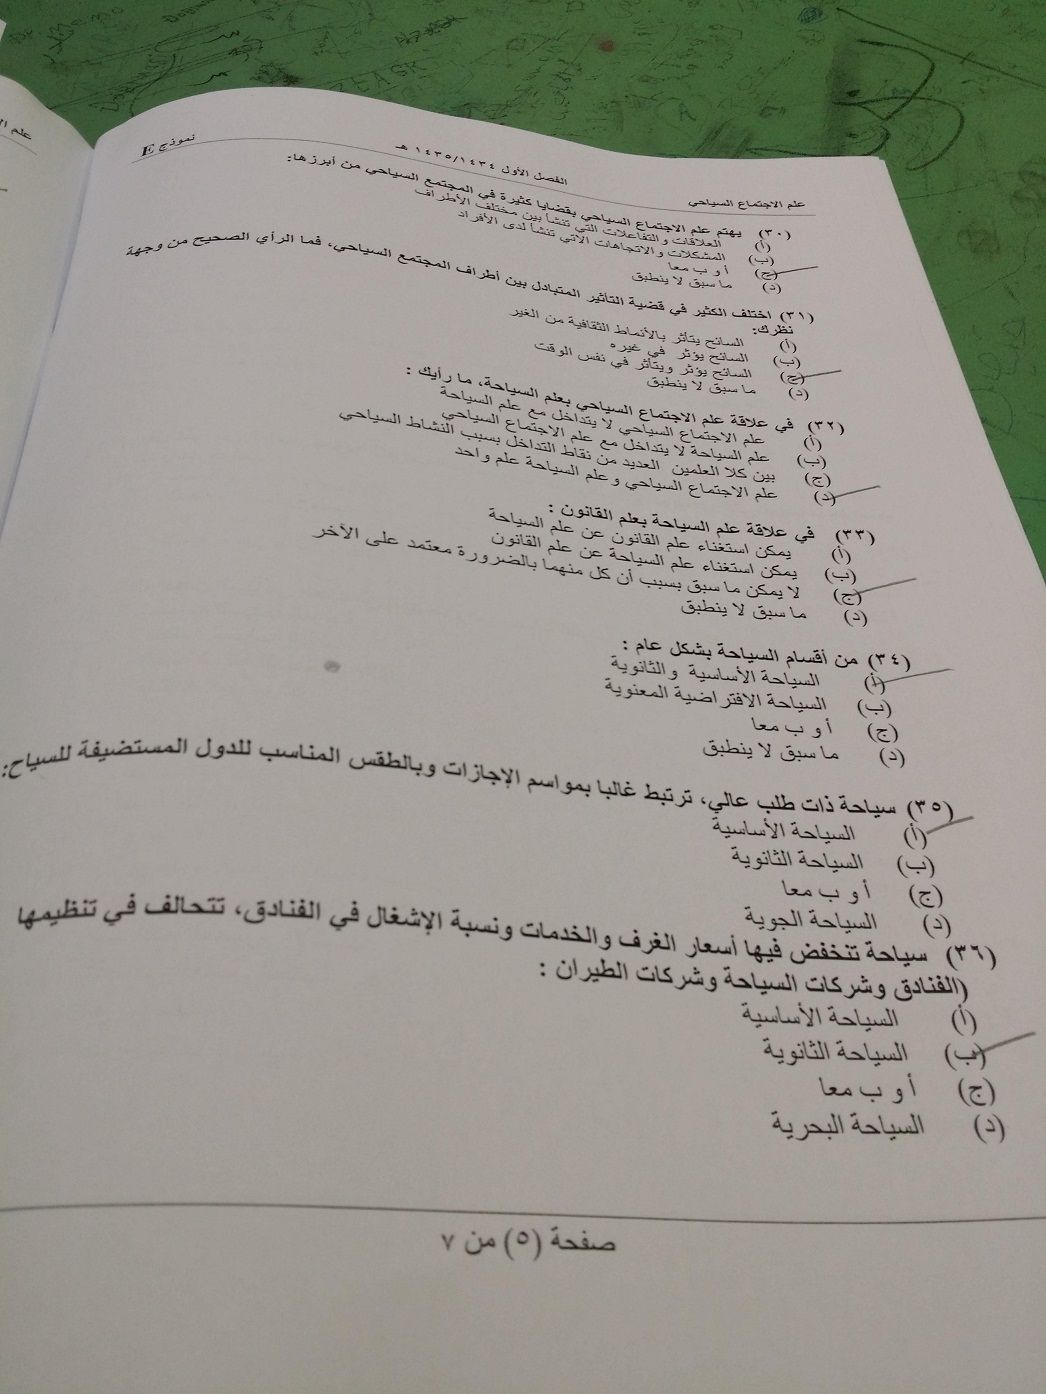 علم الاجتماع السياحي
الفصل الأول ١٤٣٤/١٤٣٥ هـ
نموذج E
(٣٠) يهتم علم الاجتماع السياحي بقضايا كثيرة في المجتمع السياحي من أبرزها:
(أ) العلاقات والتفاعلات التي تنشأ بين مختلف الأطراف
(ب) المشكلات والاتجاهات الاتي تنشأ لدى الأفراد
(ج) أ و ب معا
(د) ما سبق لا ينطبق
(٣١) اختلف الكثير في قضية التأثير المتبادل بين أطراف المجتمع السياحي، فما الرأي الصحيح من وجهة
نظرك:
(أ) السائح يتأثر بالأنماط الثقافية من الغير
(ب) السائح يؤثر في غيره
(ج) السائح يؤثر ويتأثر في نفس الوقت
(د) ما سبق لا ينطبق
(٣٢) في علاقة علم الاجتماع السياحي بعلم السياحة، ما رأيك :
(أ) علم الاجتماع السياحي لا يتداخل مع علم السياحة
(ب) علم السياحة لا يتداخل مع علم الاجتماع السياحي
(ج) بين كلا العلمين العديد من نقاط التداخل بسبب النشاط السياحي
(د) علم الاجتماع السياحي وعلم السياحة علم واحد
(٣٣) في علاقة علم السياحة بعلم القانون :
(أ) يمكن استغناء علم القانون عن علم السياحة
(ب) يمكن استغناء علم السياحة عن علم القانون
(ج) لا يمكن ما سبق بسبب أن كل منهما بالضرورة معتمد على الآخر
(د) ما سبق لا ينطبق
(٣٤) من أقسام السياحة بشكل عام :
(أ) السياحة الأساسية والثانوية
(ب) السياحة الافتراضية المعنوية
(ج) أ و ب معا
(د) ما سبق لا ينطبق
(٣٥) سياحة ذات طلب عالي، ترتبط غالبا بمواسم الإجازات وبالطقس المناسب للدول المستضيفة للسياح:
(أ) السياحة الأساسية
(ب) السياحة الثانوية
(ج) أ و ب معا
(د) السياحة الجوية
(٣٦) سياحة تنخفض فيها أسعار الغرف والخدمات ونسبة الإشغال في الفنادق، تتحالف في تنظيمها
(الفنادق وشركات السياحة وشركات الطيران :
(أ) السياحة الأساسية
(ب) السياحة الثانوية
(ج) أ و ب معا
(د) السياحة البحرية
صفحة (٥) من ٧